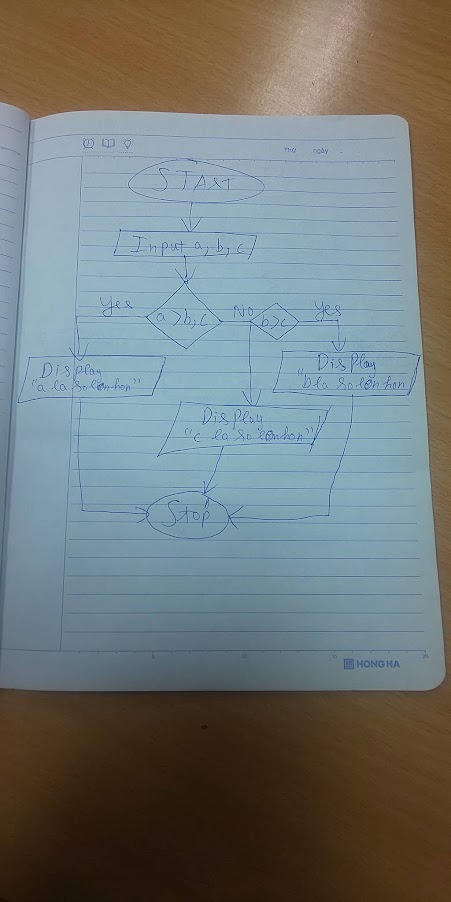 Thứ ngày
START
Input a, b, c
Yes
a > b, c
No
b > c
Yes
Display
"a la so lon hon"
Display
"b la so lon hon
Display
"c la so lon hon"
Stop
HONG HA